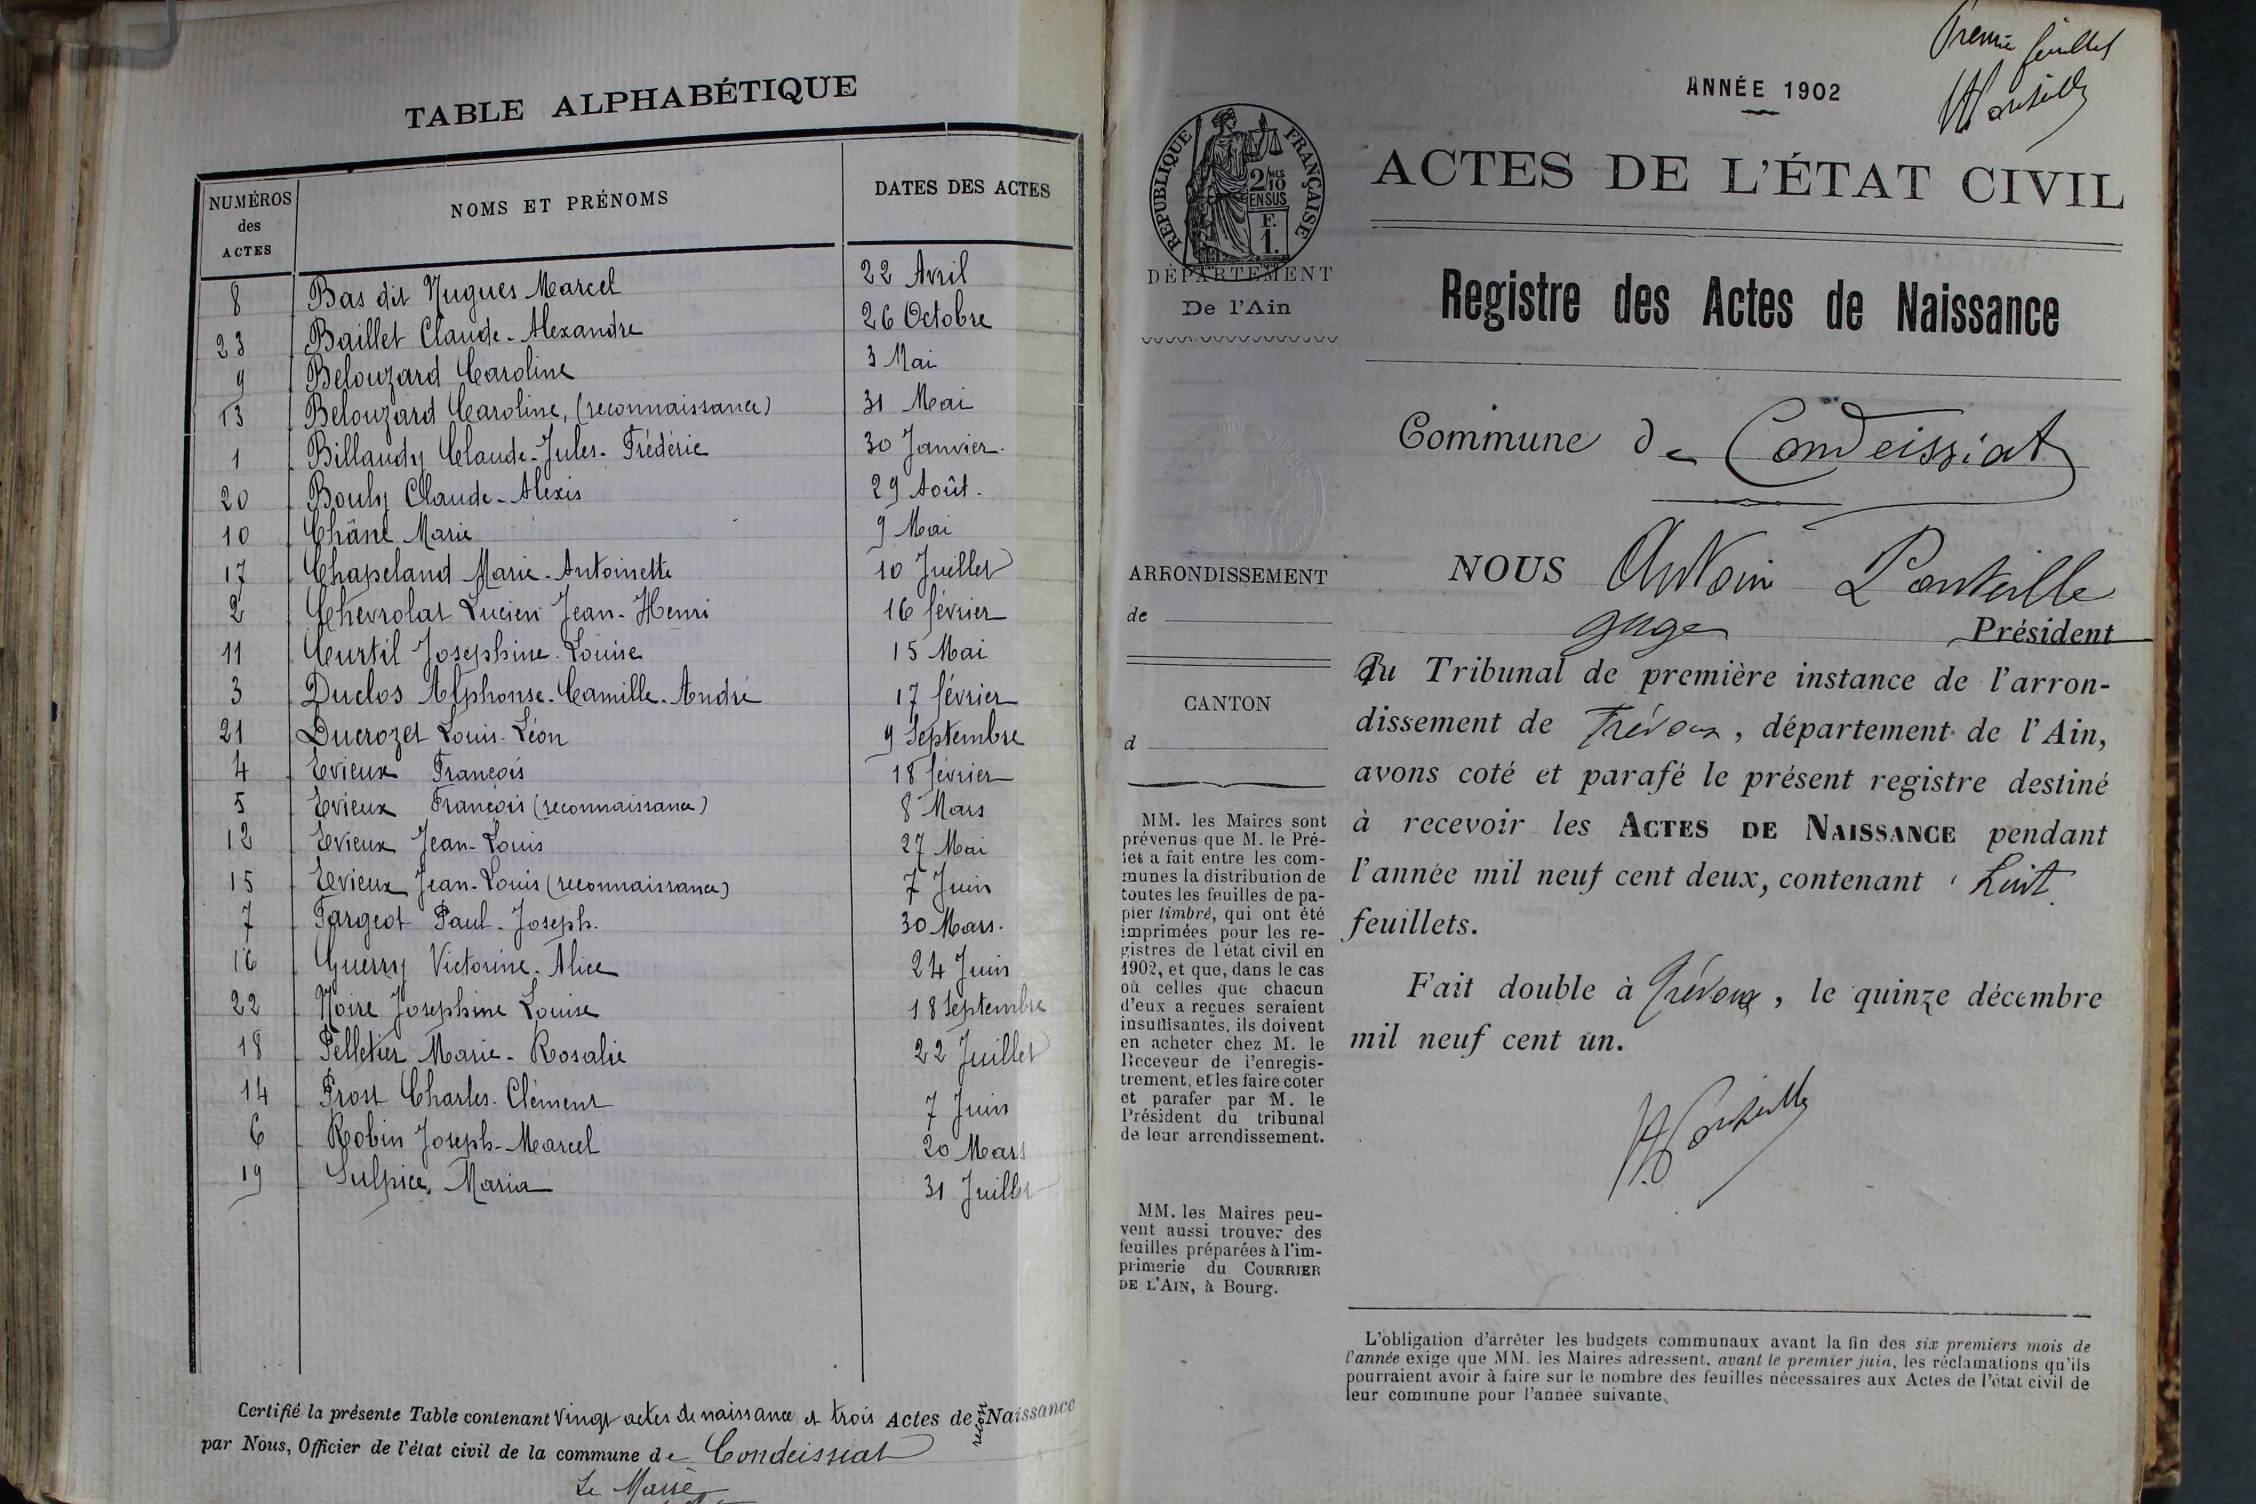 TABLE ALPHABÉTIQUE
NUMÉROS des ACTES NOMS ET PRÉNOMS DATES DES ACTES
8 Bas dit Nugues Marcel 22 Avril
23 Baillet Claude-Alexandre 26 Octobre
9 Belouzard Caroline 3 Mai
13 Belouzard Caroline, (reconnaissance) 31 Mai
1 Billaudy Claude-Jules-Frédéric 30 Janvier.
20 Bouly Claude-Alexis 29 Août.
10 Châne Marie 9 Mai
17 Chapeland Marie-Antoinette 10 Juillet
2 Chevrolat Lucien Jean-Henri 16 février
11 Curtil Josephine-Louise 15 Mai
3 Duclos Alphonse-Camille-André 17 février
21 Ducrozet Louis-Léon 9 Septembre
4 Evieux François 18 février
5 Evieux François (reconnaissance) 8 Mars
12 Evieux Jean-Louis 27 Mai
15 Evieux Jean-Louis (reconnaissance) 7 Juin
7 Fargeot Paul-Joseph. 30 Mars.
16 Guerry Victorine-Alice 24 Juin
22 Noire Josephine Louise 18 Septembre
18 Pelletier Marie-Rosalie 22 Juillet
14 Prost Charles-Clément 7 Juin
6 Robin Joseph-Marcel 20 Mars
19 Sulpice, Maria 31 Juillet
Certifié la présente Table contenant vingt actes de naissance et trois Actes de Naissance
par Nous, Officier de l'état civil de la commune de Condeissiat
Le Maire
Premier feuillet
APonteille
ANNÉE 1902
RÉPUBLIQUE FRANÇAISE
2/10
EN SUS
F.
1.
ACTES DE L'ÉTAT CIVIL
DÉPARTEMENT
De l'Ain
Registre des Actes de Naissance
Commune de Condeissiat
ARRONDISSEMENT
de
CANTON
d
MM. les Maires sont
prévenus que M. le Pré-
fet a fait entre les com-
munes la distribution de
toutes les feuilles de pa-
pier timbré, qui ont été
imprimées pour les re-
gistres de l'état civil en
1902, et que, dans le cas
où celles que chacun
d'eux a reçues seraient
insuffisantes, ils doivent
en acheter chez M. le
Receveur de l'enregis-
trement, et les faire coter
et parafer par M. le
Président du tribunal
de leur arrondissement.
MM. les Maires peu-
vent aussi trouver des
feuilles préparées à l'im-
primerie du COURRIER
DE L'AIN, à Bourg.
NOUS Antoin Ponteille
juge Président
Du Tribunal de première instance de l'arron-
dissement de Trévoux, département de l'Ain,
avons coté et parafé le présent registre destiné
à recevoir les ACTES DE NAISSANCE pendant
l'année mil neuf cent deux, contenant huit
feuillets.
Fait double à Trévoux, le quinze décembre
mil neuf cent un.
APonteille
L'obligation d'arrêter les budgets communaux avant la fin des six premiers mois de
l'année exige que MM. les Maires adressent, avant le premier juin, les réclamations qu'ils
pourraient avoir à faire sur le nombre des feuilles nécessaires aux Actes de l'état civil de
leur commune pour l'année suivante.